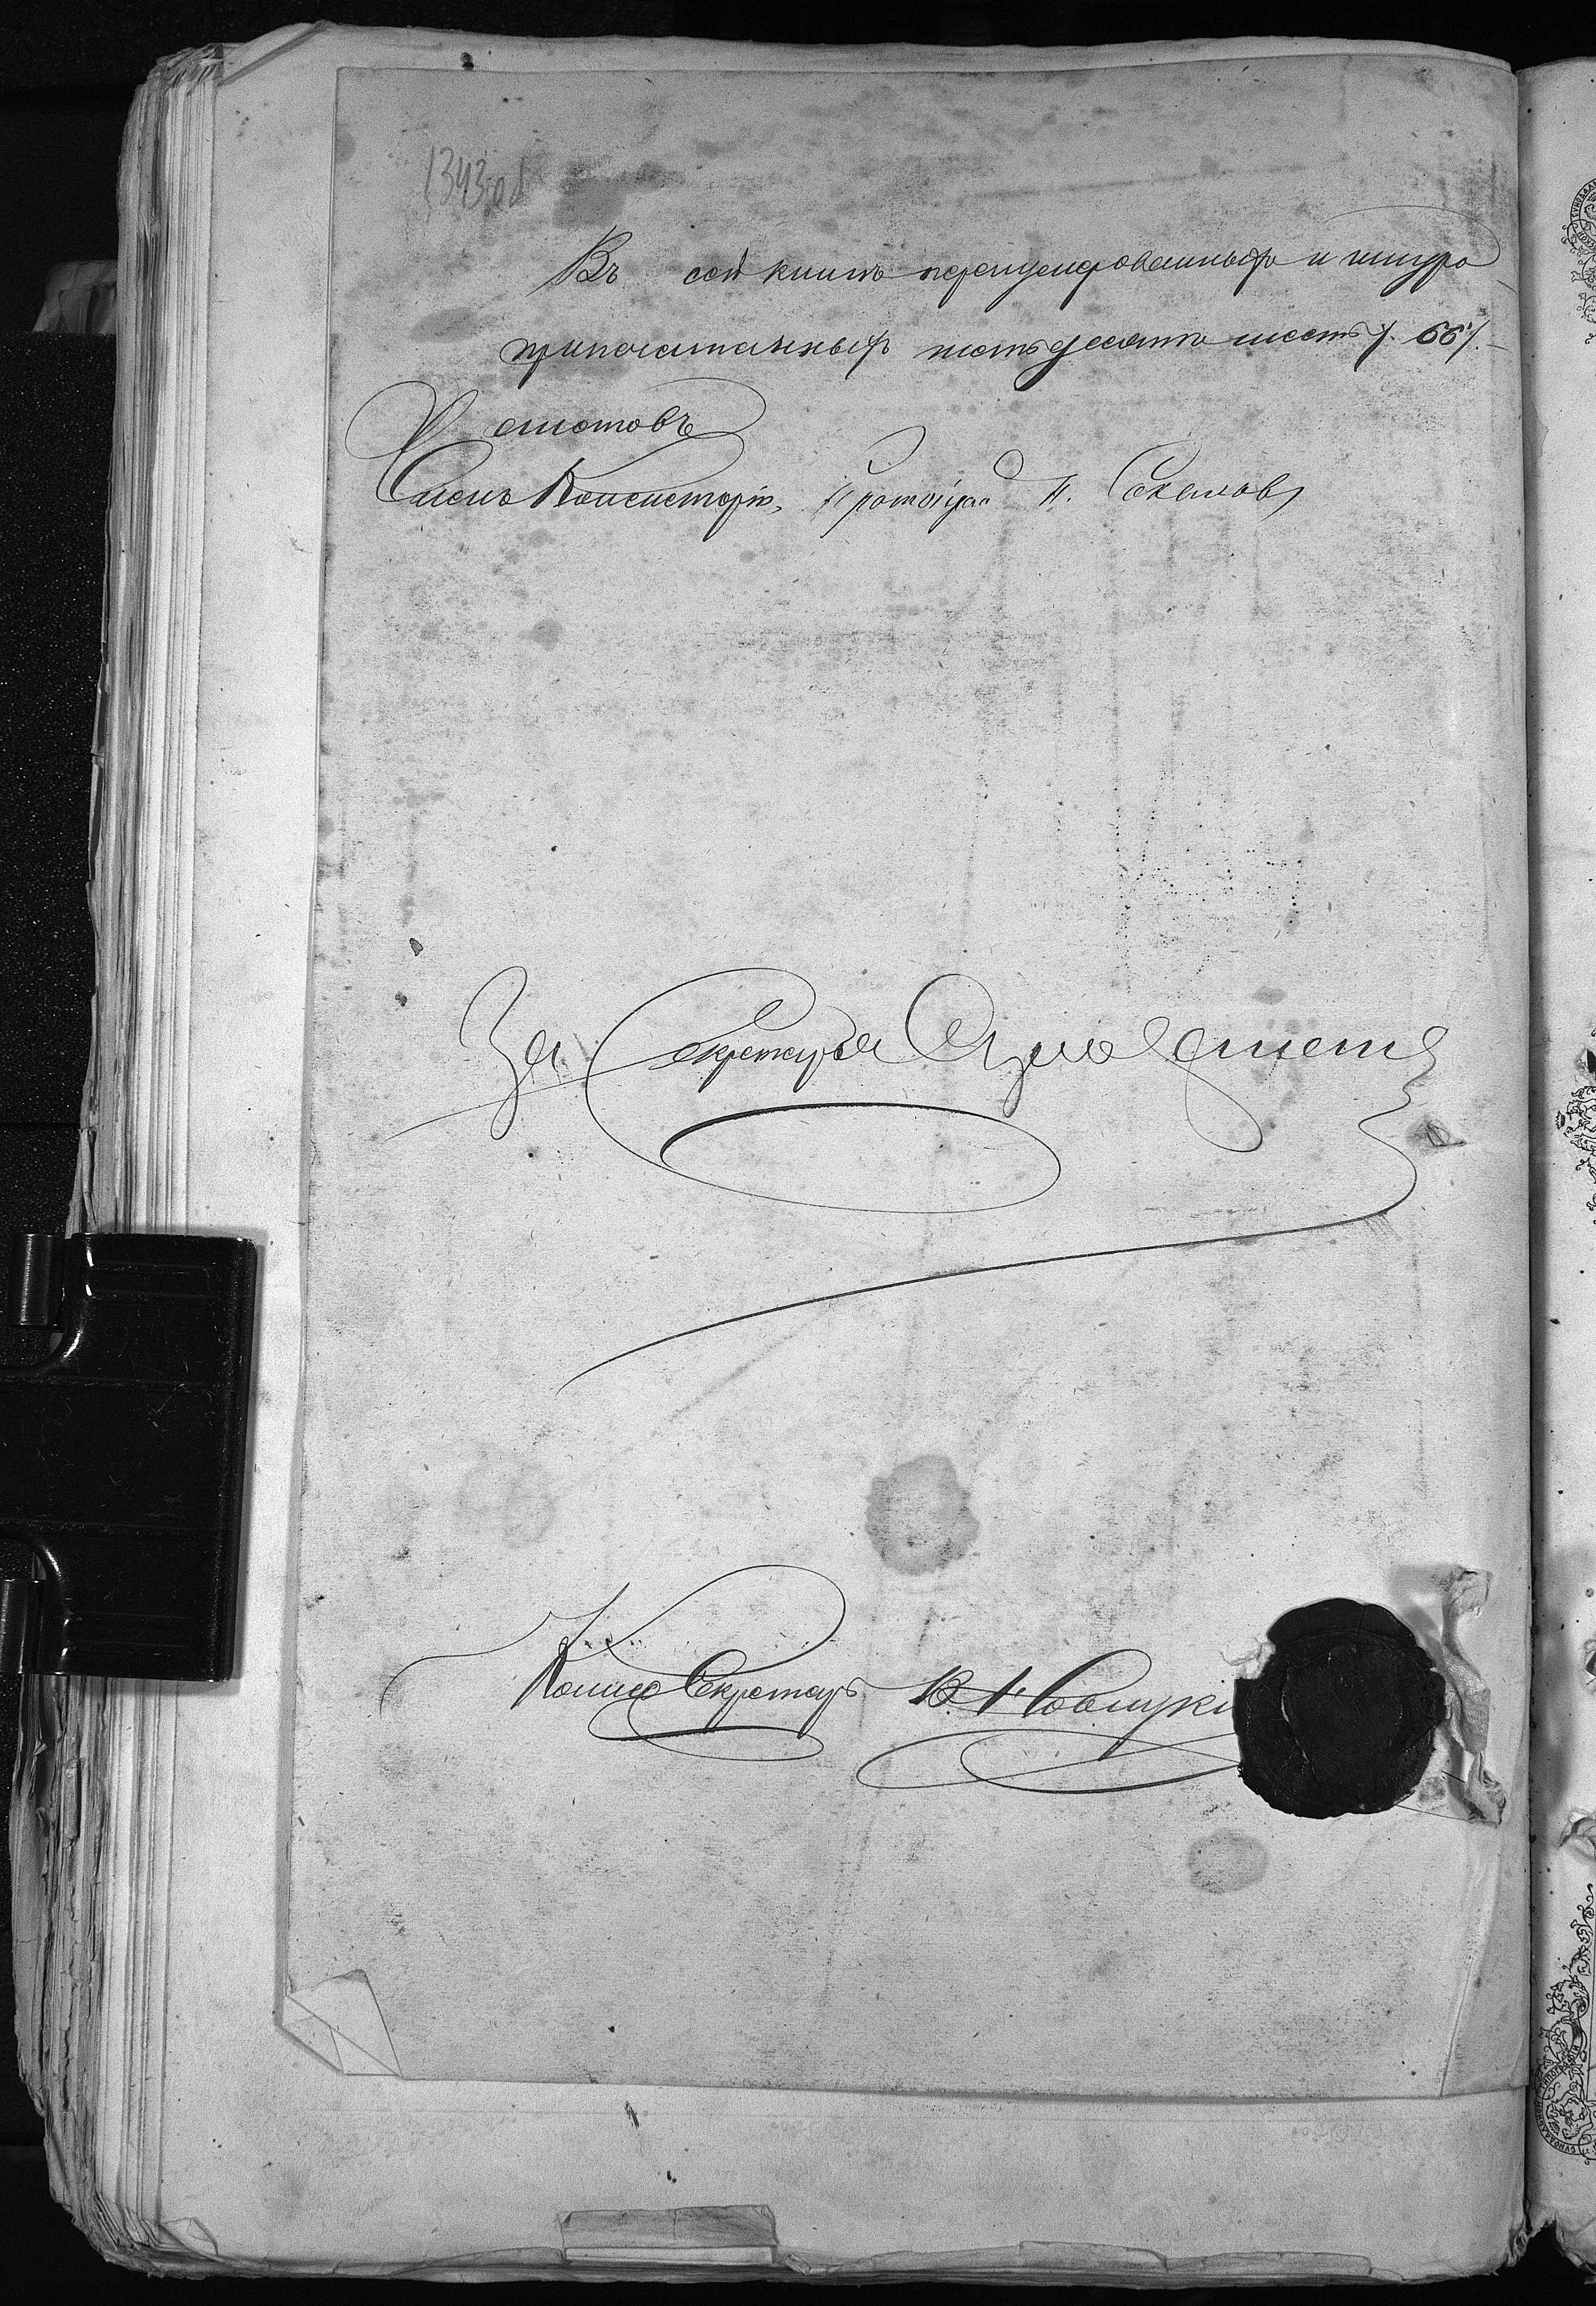 1343 об
Въ сей книгѣ перенумерованныхъ и шнуро
припечатанныхъ пятьдесятъ шесть /: 56 :/
листовъ
Членъ Консисторіи, Протоіерей П. Соколовъ
За Секретаря
Коллеж. Секретарь В. Новицкі